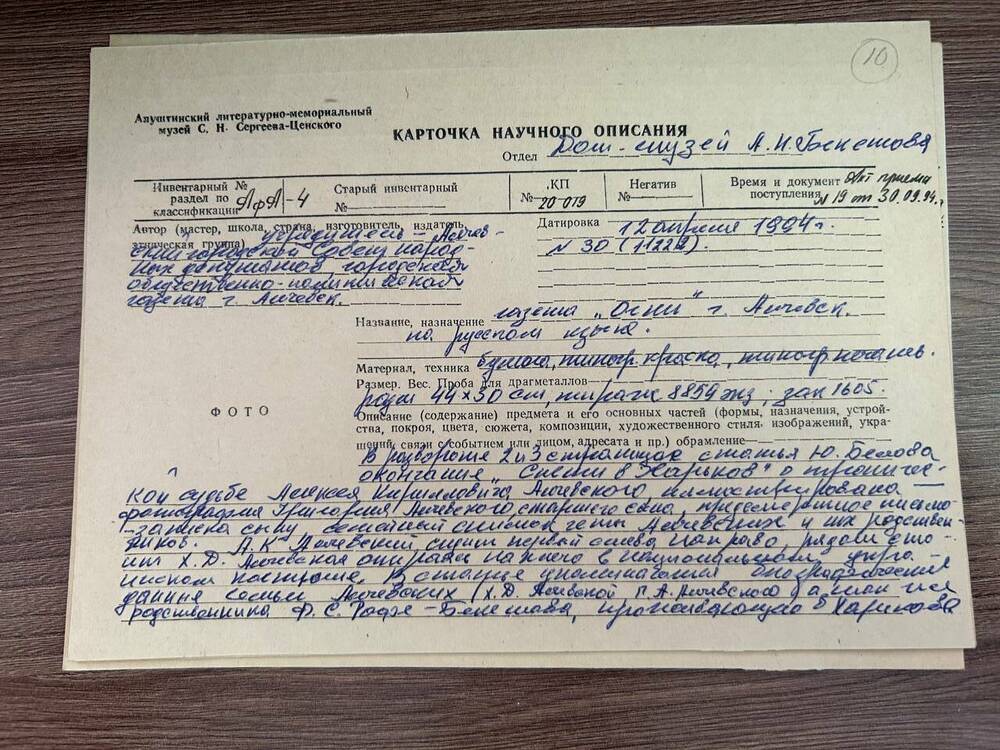 10
Алуштинский литературно-мемориальный
музей С. Н. Сергеева-Ценского
КАРТОЧКА НАУЧНОГО ОПИСАНИЯ
Отдел Дом-музей А.Н. Бекетова
Инвентарный № раздел по классификации АфА-4
Старый инвентарный №
КП № 20 019
Негатив №
Время и документ поступления Акт приема
№ 19 от 30.09.94г.
Автор (мастер, школа, страна, изготовитель, издатель,
этническая группа) учредитель – Алчев-
ский городской Совет народ-
ных депутатов, городской
общественно-политической
газеты г. Алчевск.
Датировка 12 апреля 1994г.
№ 30 (11229).
Название, назначение газета „Огни" г. Алчевск.
на русском языке.
Материал, техника бумага, типогр. краска, типогр. печать.
Размер. Вес. Проба для драгметаллов
разм 44х30 см, тираж 8859 экз; зак 1605.
ФОТО
Описание (содержание) предмета и его основных частей (формы, назначения, устрой-
ства, покроя, цвета, сюжета, композиции, художественного стиля изображений, укра-
шений, связи с событием или лицом, адресата и пр.) обрамление
В развороте 2 и 3 страницах статья Ю. Белова
окончания „Спеши в Харьков" о трагичес-
кой судьбе Алексея Кирилловича Алчевского, иллюстрирована
фотография Григория Алчевского старшего сына, предсмертное письмо-
записка сыну, семейный снимок четы Алчевских и их родствен-
ников. А.К. Алчевский сидит первый слева направо, рядом сто-
ит Х.Д. Алчевская опираясь на плечо в национальном укра-
инском костюме. В статье упоминаются биографические
данные семьи Алчевских (Х.Д. Алчевской, Г.А. Алчевского) а также
родственника Ф.С. Рофе-Бекетова, проживающего в Харькове